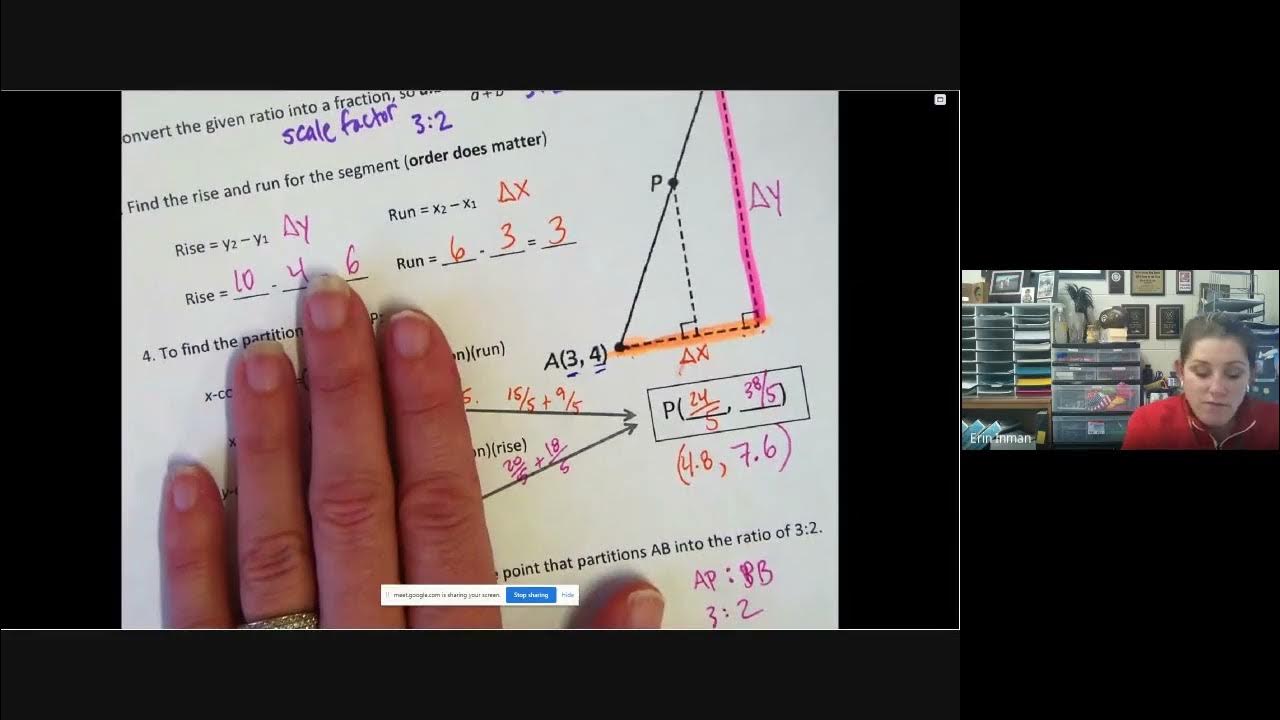 onvert the given ratio into a fraction, so
a + b
scale factor 3:2
Find the rise and run for the segment (order does matter)
Rise = y₂ – y₁ ΔY
Run = x₂ – x₁ ΔX
Rise = 10 - 4 6
Run = 6 - 3 = 3
P
ΔY
A(3, 4)
ΔX
4. To find the partition P:
on)(run)
x-co
5. 15/5 + 9/5
P(24/5, 38/5)
x
on)(rise)
20/5 + 18/5
(4.8, 7.6)
y-
point that partitions AB into the ratio of 3:2.
AP : PB
3:2
meet.google.com is sharing your screen. Stop sharing Hide
Erin Inman